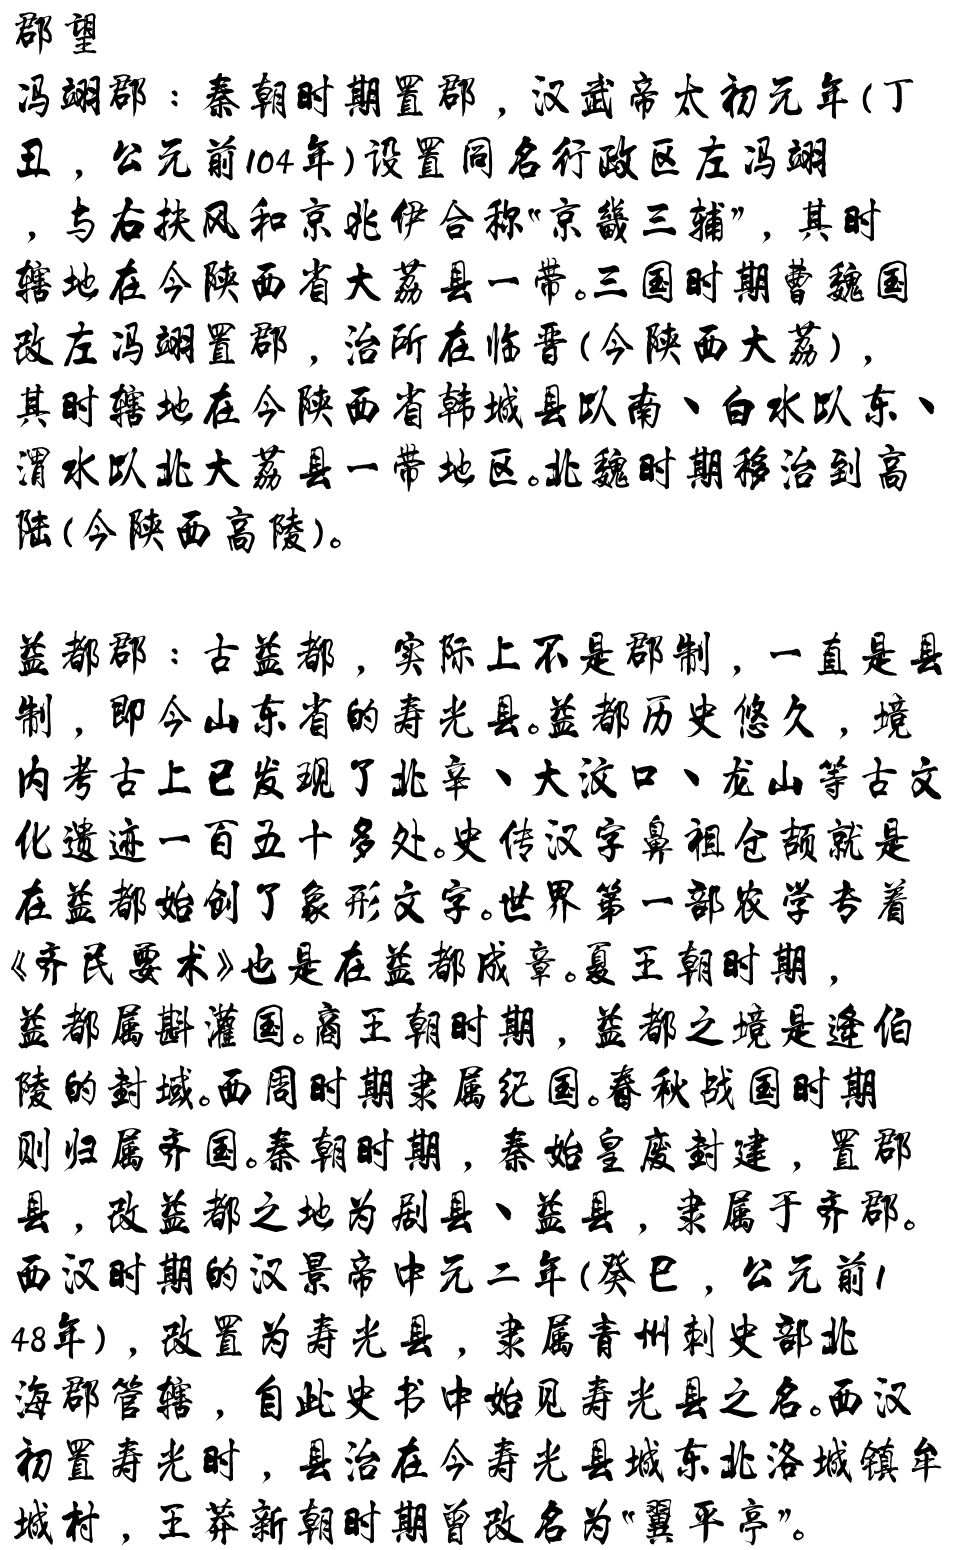 郡望
冯翊郡：秦朝时期置郡，汉武帝太初元年(丁
丑，公元前104年)设置同名行政区左冯翊
，与右扶风和京兆伊合称“京畿三辅”，其时
辖地在今陕西省大荔县一带。三国时期曹魏国
改左冯翊置郡，治所在临晋(今陕西大荔)，
其时辖地在今陕西省韩城县以南、白水以东、
渭水以北大荔县一带地区。北魏时期移治到高
陆(今陕西高陵)。
益都郡：古益都，实际上不是郡制，一直是县
制，即今山东省的寿光县。益都历史悠久，境
内考古上已发现了北辛、大汶口、龙山等古文
化遗迹一百五十多处。史传汉字鼻祖仓颉就是
在益都始创了象形文字。世界第一部农学专着
《齐民要术》也是在益都成章。夏王朝时期，
益都属斟灌国。商王朝时期，益都之境是逄伯
陵的封域。西周时期隶属纪国。春秋战国时期
则归属齐国。秦朝时期，秦始皇废封建，置郡
县，改益都之地为剧县、益县，隶属于齐郡。
西汉时期的汉景帝中元二年(癸巳，公元前1
48年)，改置为寿光县，隶属青州刺史部北
海郡管辖，自此史书中始见寿光县之名。西汉
初置寿光时，县治在今寿光县城东北洛城镇牟
城村，王莽新朝时期曾改名为“翼平亭”。